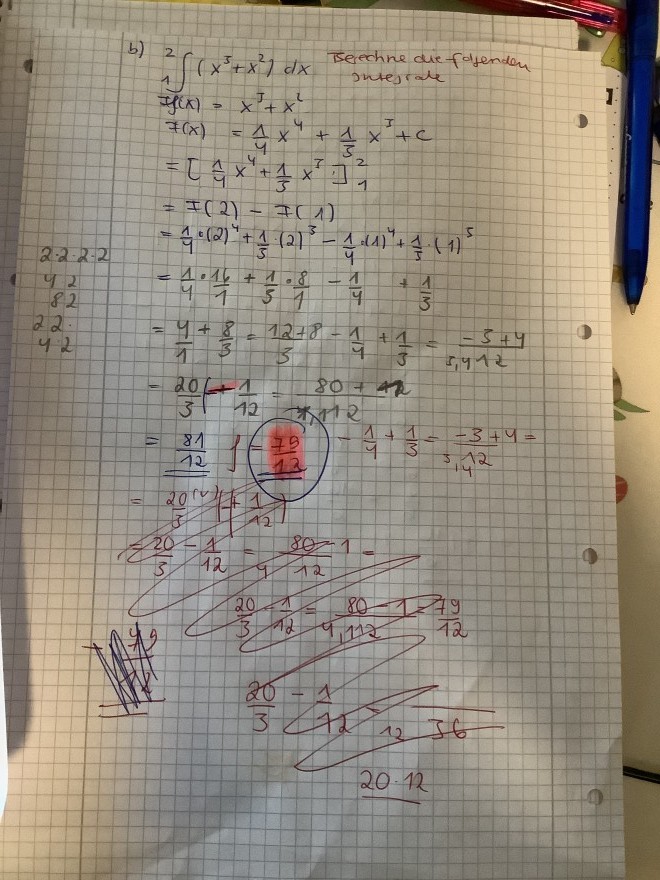 b) ₁∫² (x³+x²) dx Berechne die folgenden
Integrale
f(x) = x³+x²
F(x) = 1/4 x⁴ + 1/3 x³ + C
= [ 1/4 x⁴ + 1/3 x³ ]²₁
= F(2) - F(1)
= 1/4 · (2)⁴ + 1/3 · (2)³ - 1/4 · (1)⁴ + 1/3 · (1)³
2·2·2·2
= 1/4 · 16/1 + 1/3 · 8/1 - 1/4 + 1/3
4 2
8 2
2 2·
4·2
= 4/1 + 8/3 = 12+8/3 - 1/4 + 1/3 = -3+4/3,4 12
= 20/3 + 1/12 = 80 +
= 81/12 } = 79/12 - 1/4 + 1/3 = -3+4/3,4 12 =
= 20/3 1/12
= 20/3 - 1/12 = 80-1/12 =
20/3 - 1/12 = 80-1/4,1 12 = 79/12
20/3 - 1/12 = 12 36
20·12